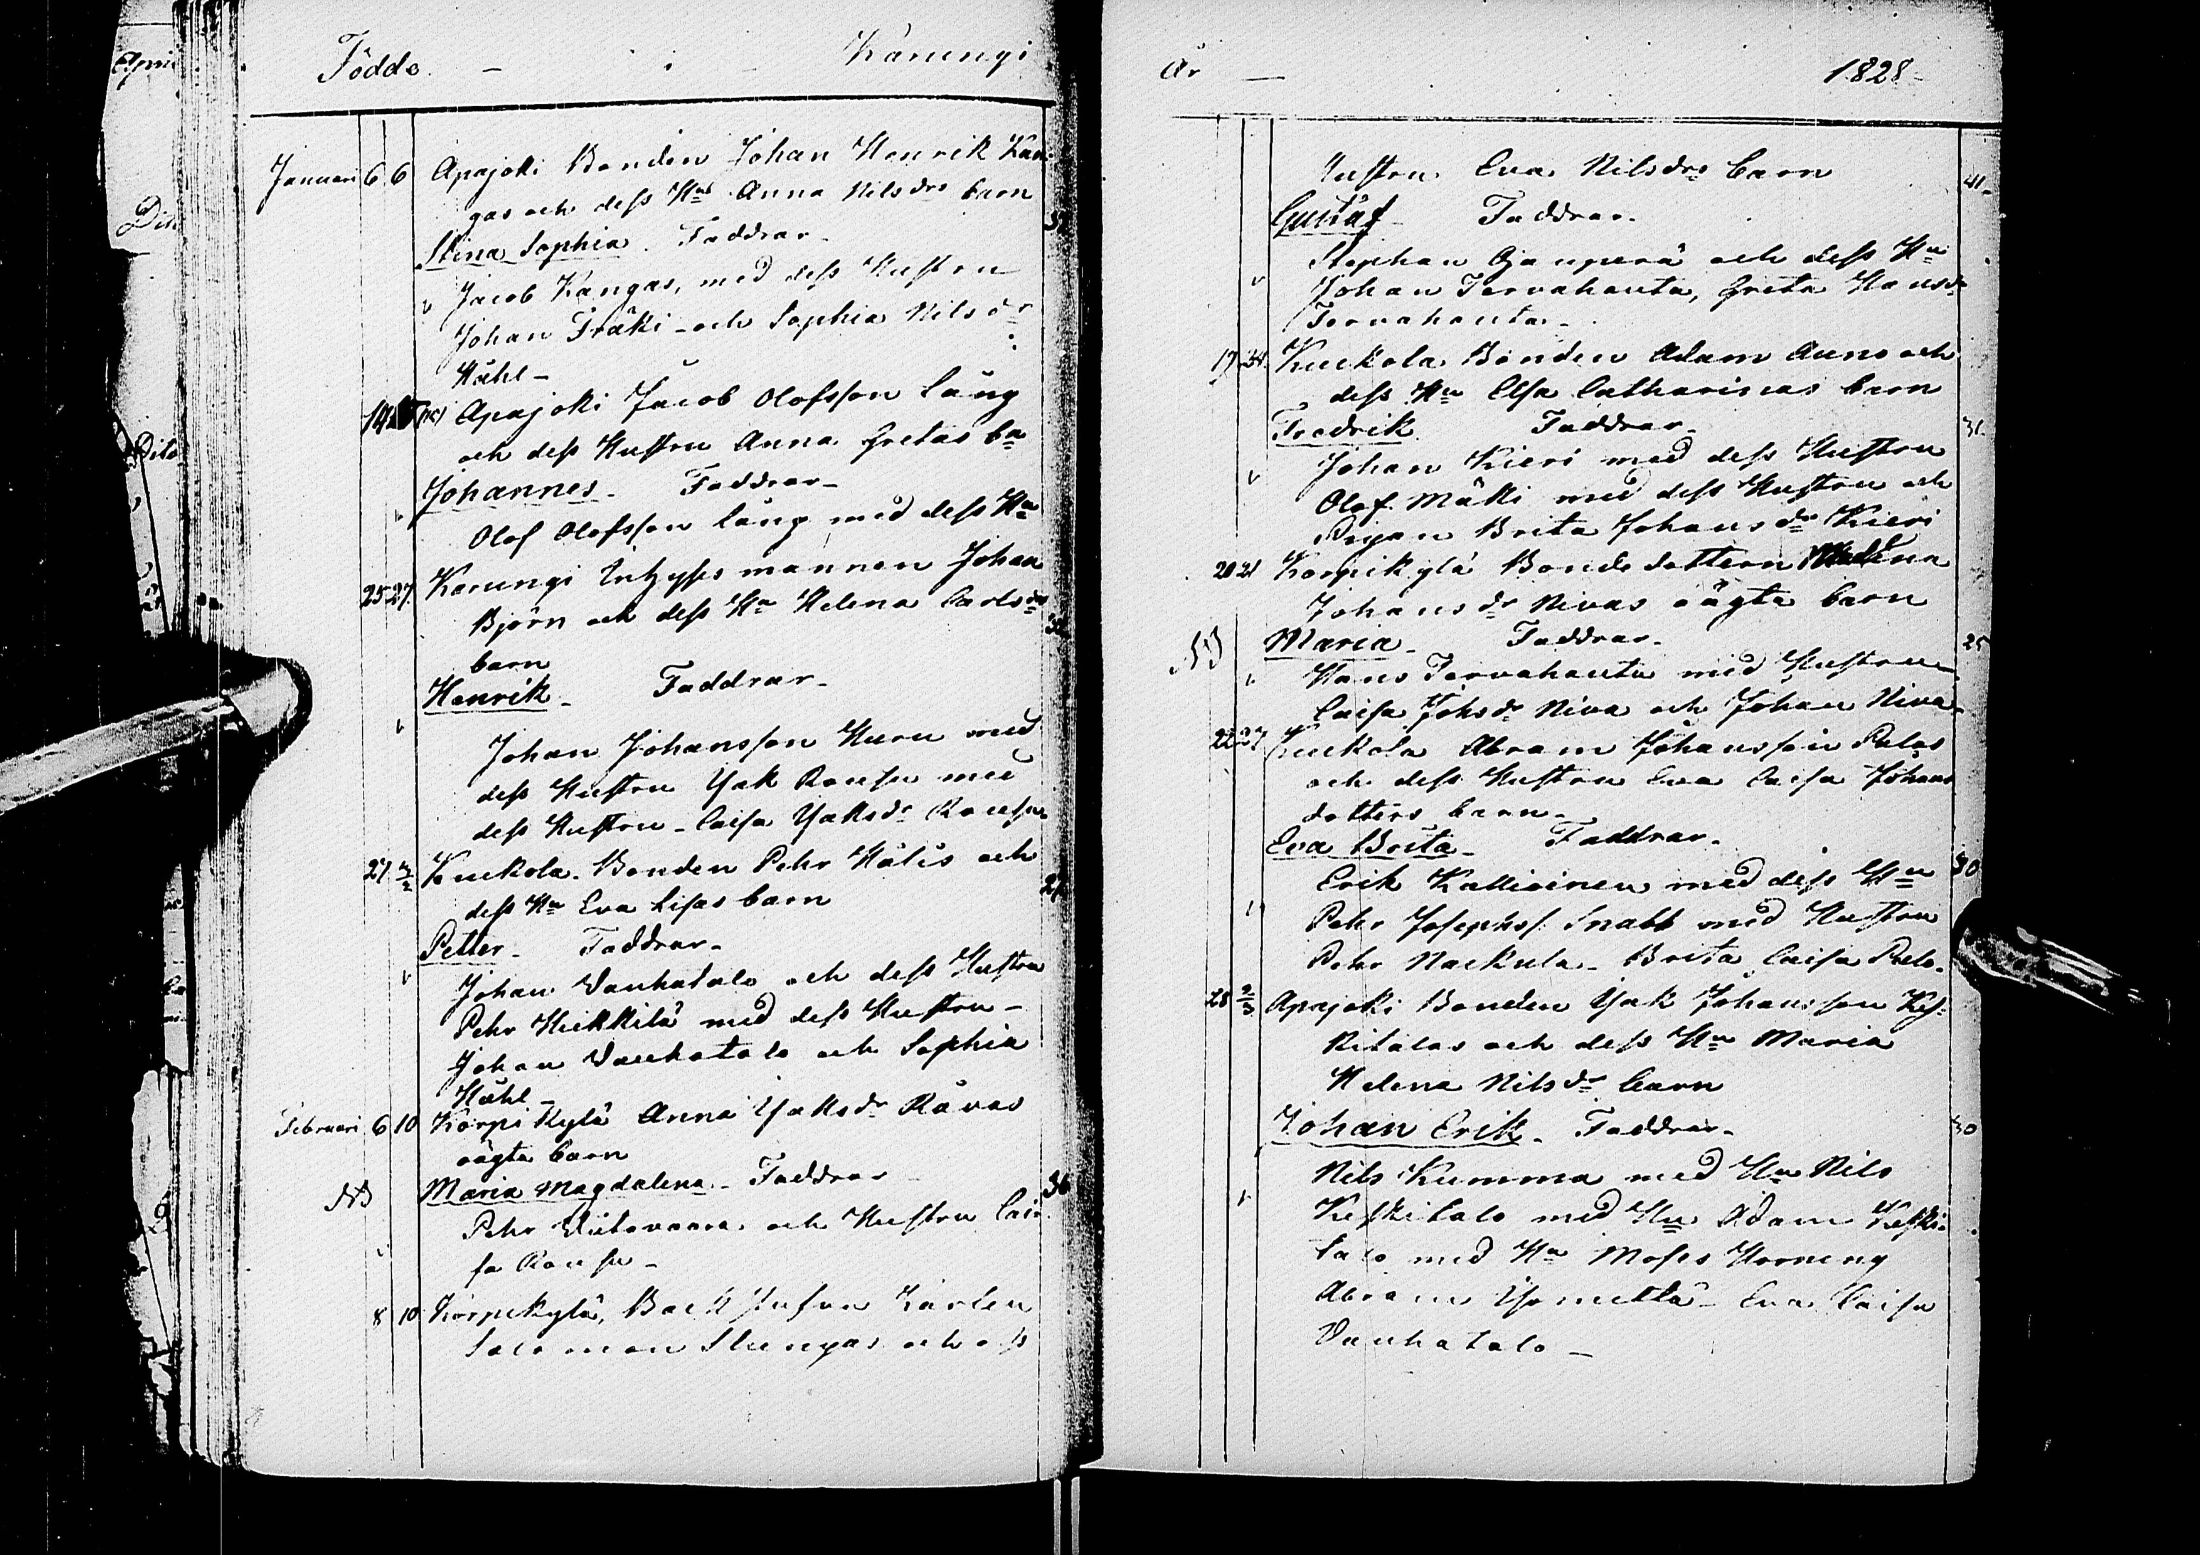 Födde - i - Karungi
Januari 6 6 Apajoki Bonden Johan Henrik Kan
gas och dess Hus Anna Nilsdrs barn
Stina Sophia. Faddrar
Jacob Kangas, med dess Hustru
Johan Fräki och Sophia Nilsdr
Håhl
Apajoki Jacob Olofsson Lång
och dess Hustru Anna Gretas ba
Johannes. Faddrar
Olof Olofsson Lång med dess Hu
25 27 Karungi Inhyses mannen Johan
Björn och dess Hu Helena Carlsdrs
barn
Henrik Faddrar
Johan Johansson Huru med
dess Hustru Isak Rousu med
dess Hustru Caisa Isaksdr Rousu
27 3/2 Kuckola Bonden Pehr Hälis och
dess Hu Eva Lisas barn
Petter Faddrar
Johan Vanhatalo och dess Hustru
Pehr Heikkilä med dess Hustru
Johan Vanhatalo och Sophia
Håhl
Februari 6 10 Korpikylä Anna Isaksdr Råvas
oägta barn
NB Maria Magdalena Faddrar 36
Pehr Viitavaara och Hustru Cai
sa Rousu
8 10 Korpikylä, Back Stufvu Karlen
Salomon Slungas och dess
År 1828
Hustru Eva Nilsdrs barn 41
Gustaf Faddrar
Stephan Ojanperä och dess Hu
Johan Tervahauta, Greta Hansdr
Tervahauta
17 24 Kuckola Bonden Adam Auno och
dess Hu Elsa Catharinas barn
Fredrik Faddrar 31
Johan Kieri med dess Hustru
Olof Mäki med dess Hustru och
Pigan Brita Johansdr Kieri
20 21 Korpikylä Bonde dottern
Johansdr Nivas oägta barn
NB Maria Faddrar 25
Hans Tervahauta med Hustru
Caisa Johsdr Niva och Johan Niva
22 27 Kuckola Abram Johansson Palos
och dess Hustru Eva Caisa Johans
dotters barn
Eva Brita Faddrar 30
Erik Kallioinen med dess Hu
Pehr Josephss. Snabb med Hustru
Pehr Nackula Brita Caisa Palo
28 2/3 Apajoki Bonden Isak Johansson Kes
kitalos och dess Hu Maria
Helena Nilsdr barn
Johan Erik Faddrar 30
Nils Kumma med Hu Nils
Keskitalo med Hu Adam Keski
talo med Hu Moses Horneng
Abram Eva Caisa
Vanhatalo